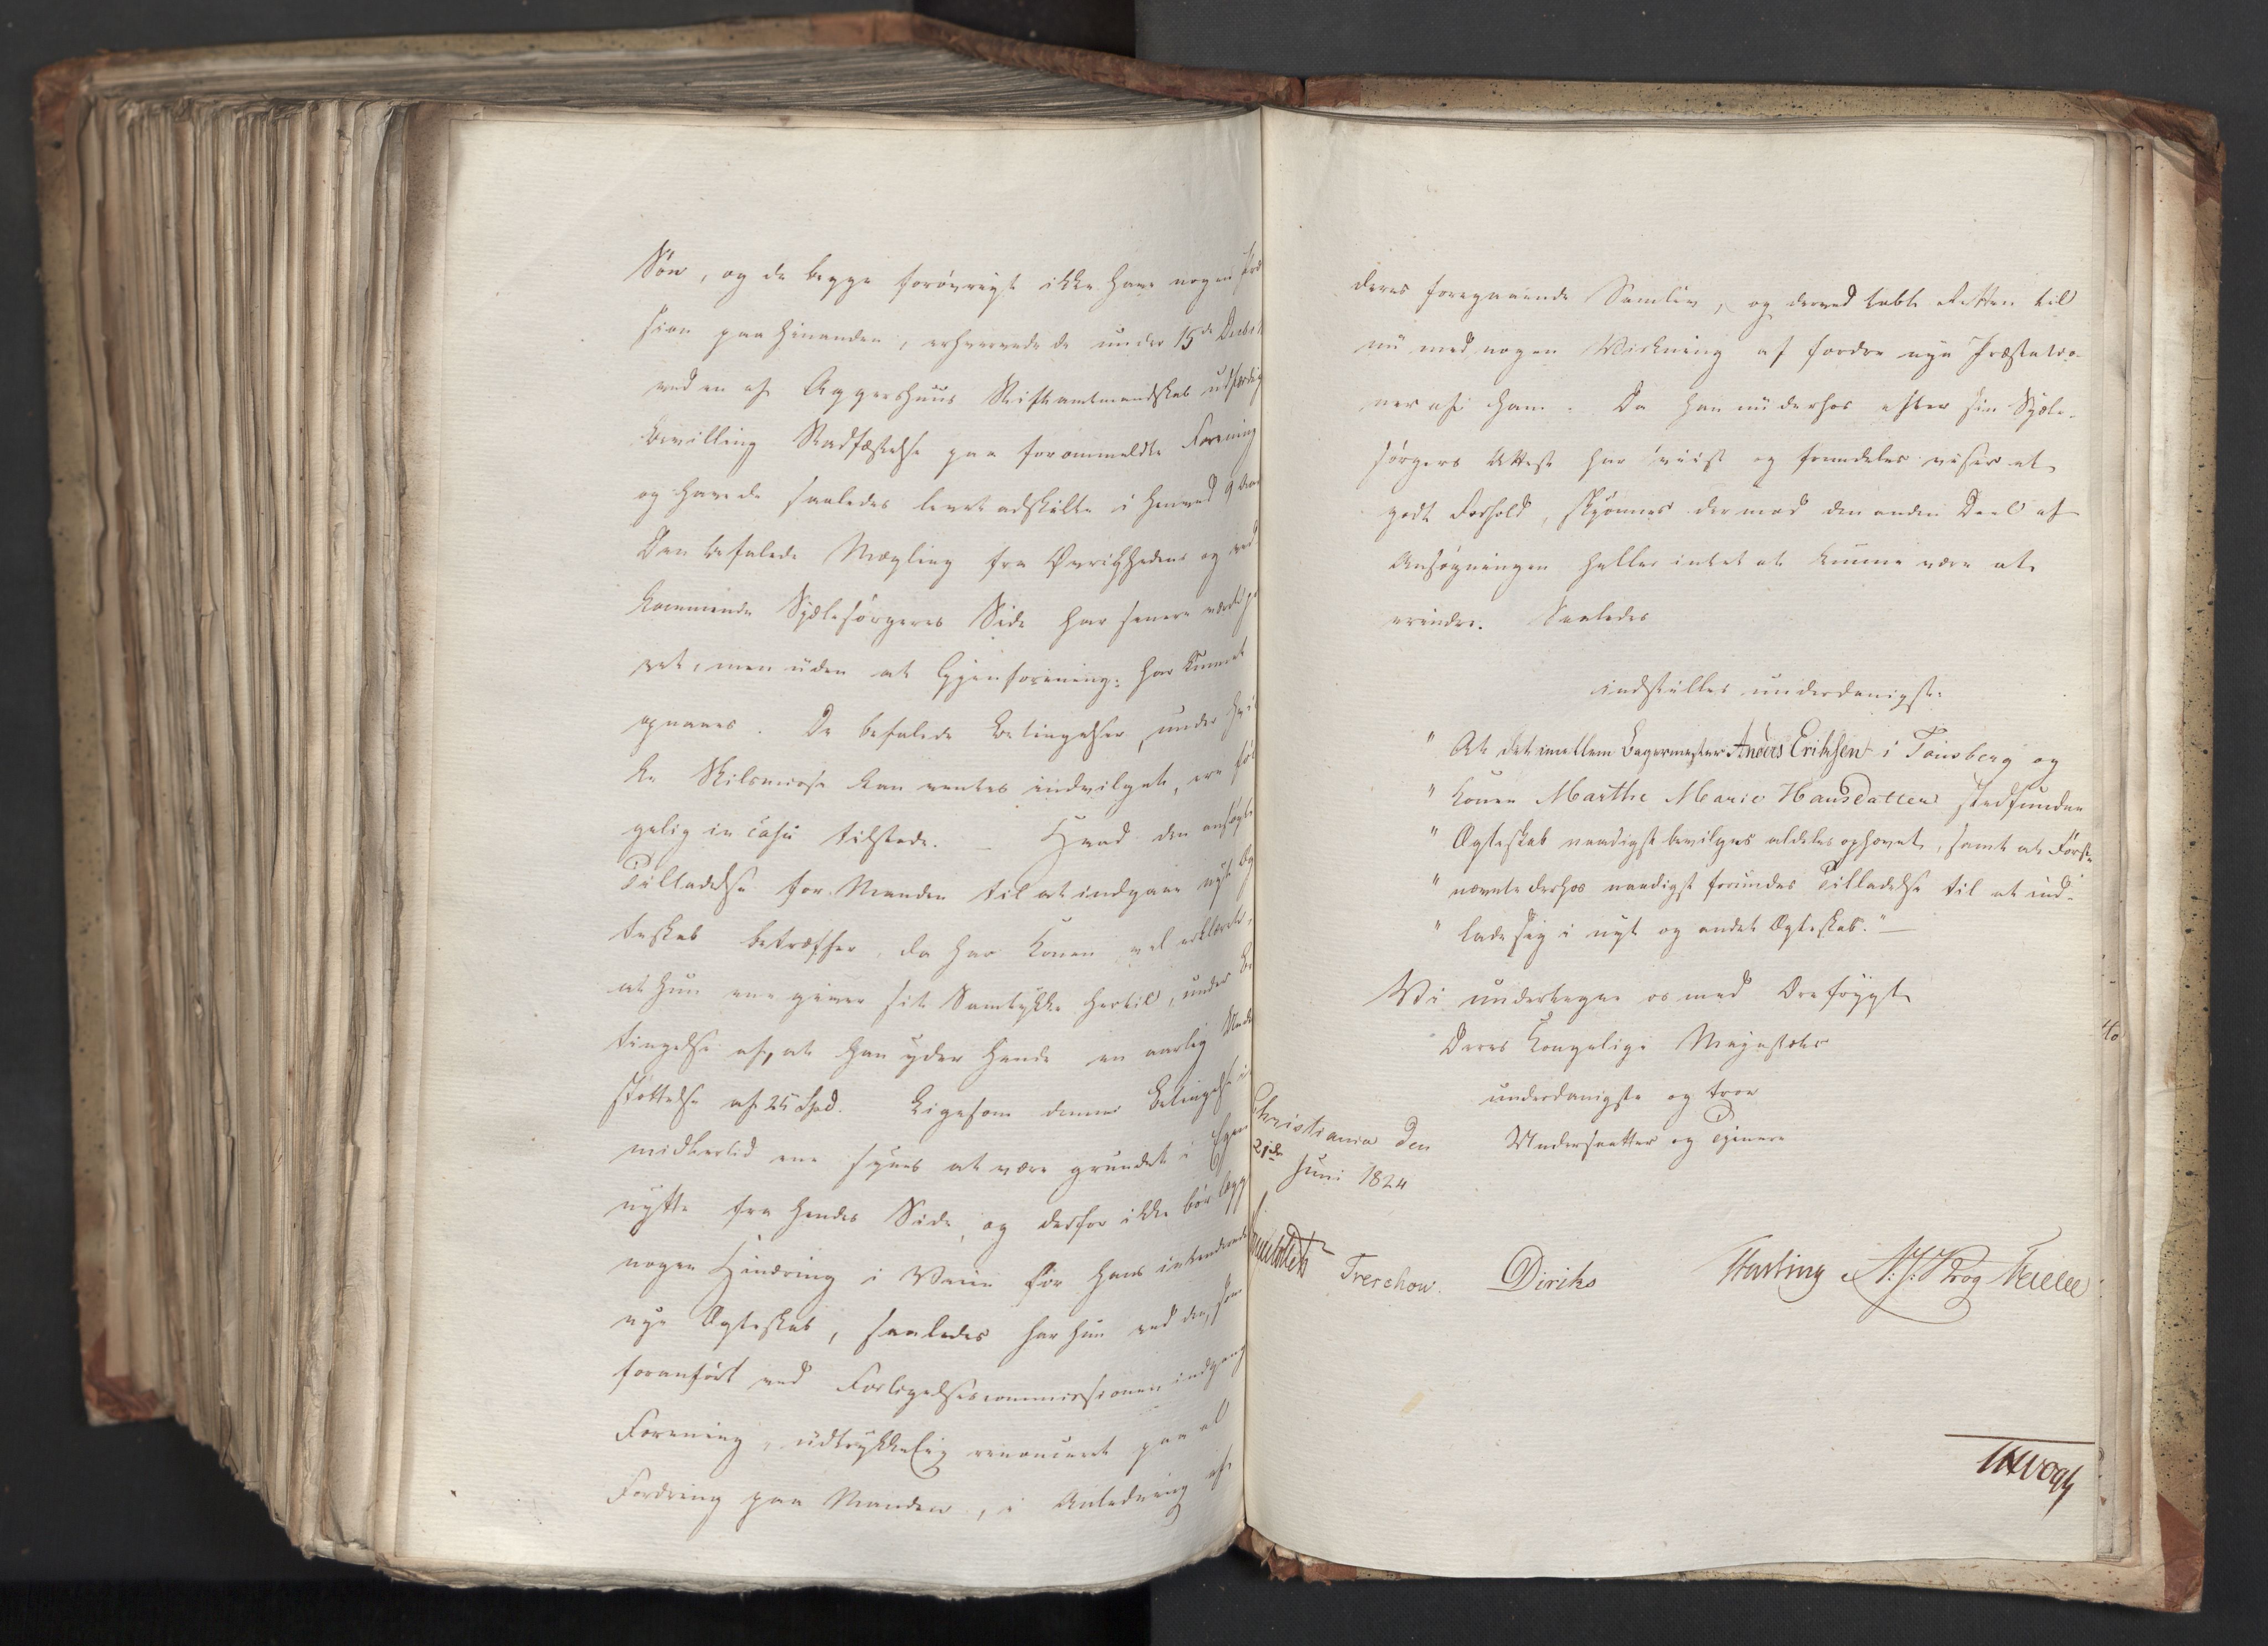 Søn, og de begge forøvrigt ikke have nogen
sion paa hinanden, erhvervede de under 15de Decbr
ved en af Aggershuus Stiftamtmandskab udfærdig
Bevilling Stadfæstelse paa forommeldte Forening
og have de saaledes levet adskilte i henved 9 Aar
Den befalede Mægling fra Øvrighedens og ved
kommende Sjælesørgeres Side har senere været
vet, men uden at Gjenforening har kunnet
opnaaes. De befalede Betingelser, under hvil
ke Skilsmisse kan ventes indvilget, ere føl
gelig in casu tilstede. – Hvad den ansøgte
Tilladelse for Manden til at indgaae nyt Æg
teskab betræffer, da har Konen vel erklæret,
at hun ene giver sit Samtykke hertil, under Be
tingelse af, at han yder hende en aarlig Under
støttelse af 25 Spd. Ligesom denne Betingelse i
midlertid ene synes at være grundet i Egen
nytte fra hendes Side, og derfor ikke bør lægge
nogen Hindring i Veien for hans intenderede
nye Ægteskab, saaledes har hun ved den, som
foranført ved Forligelsescommissionen indgang
Forening, udtrykkelig renonceret paa al
Fordring paa Manden, i Anledning af
deres foregaaende Samliv, og derved tabt Retten til
nu med nogen Virkning at fordre nye Præstatio-
ner af ham. Da han nu derhos efter sin Sjæle-
sørgers Attest har viist og fremdeles viser et
godt Forhold, skjønnes der mod den anden Deel af
Ansøgningen heller intet at kunne være at
erindre. Saaledes
indstilles underdanigst:
" At det imellem Bagermester Anders Eriksen i Tønsberg og
" Konen Marthe Marie Hansdatter stedfundne
" Ægteskab naadigst bevilges aldeles ophævet, samt at Først-
" nævnte derhos naadigst forundes Tilladelse til at ind-
" lade sig i nyt og andet Ægteskab." –
Vi undertegne os med Ærefrygt
Deres Kongelige Majestæts
underdanigste og troe
Undersaatter og Tjenere
Christiania den
21de Juni 1824
Treschow. Diriks N: J: Krog